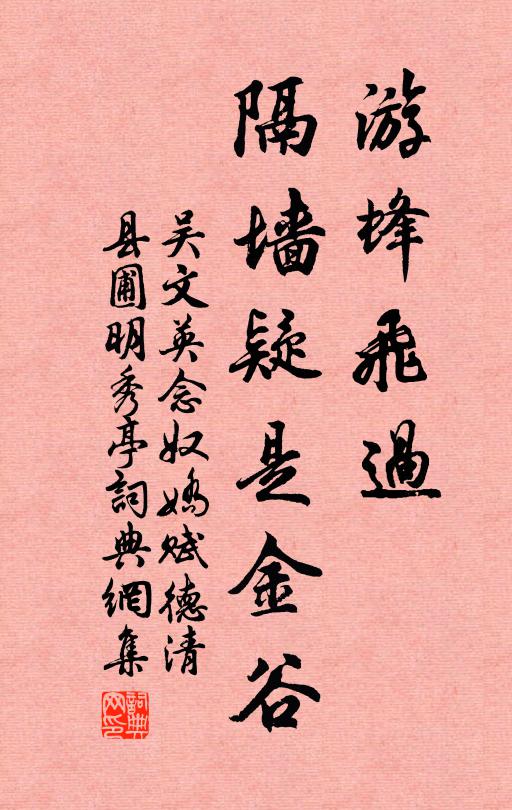 游蜂飛過
隔墙疑是金谷
吴文英念奴嬌赋德清
县圃明秀亭詞典網集
詞典网印